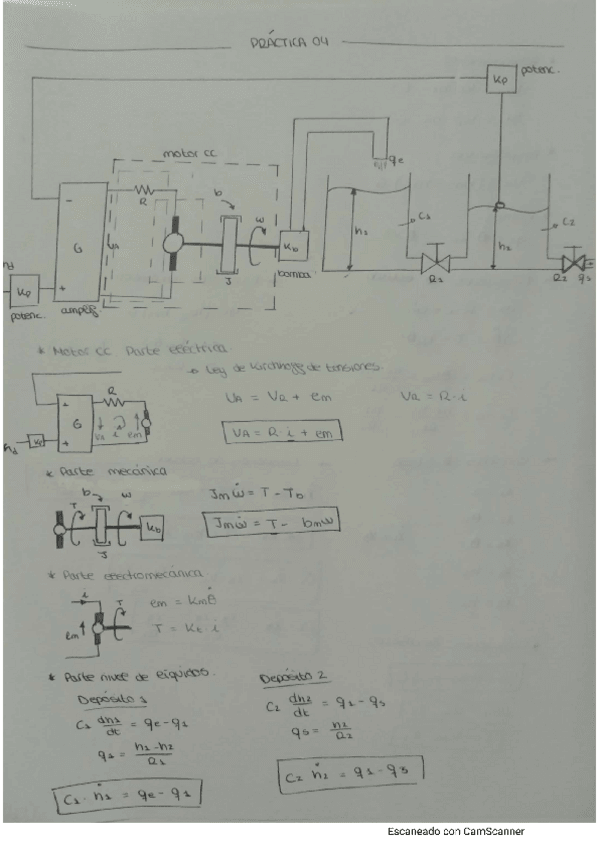 PRÁCTICA 04
Kp potenc.
motor cc
qe
R
b
ω
C1
C2
h1
h2
G
VA
Kb
bomba
J
R1
R2 qs
hd
Kp
potenc.
amplif.
* Motor CC. Parte eléctrica
→ Ley de Kirchhoff de tensiones.
R
G
VA i em
hd Kp
VA = VR + em
VR = R·i
VA = R·i + em
* Parte mecánica
b ω
T
Kb
J
Jmω̇ = T - Tb
Jmω̇ = T - bmω
* Parte electromecánica
i
T
em
em = Kmθ̇
T = Kt·i
* Parte nivel de líquidos.
Depósito 1
C1 dh1/dt = qe - q1
q1 = h1 - h2/R1
C1 · ḣ1 = qe - q1
Depósito 2
C2 dh2/dt = q1 - qs
qs = h2/R2
C2 ḣ2 = q1 - qs
Escaneado con CamScanner